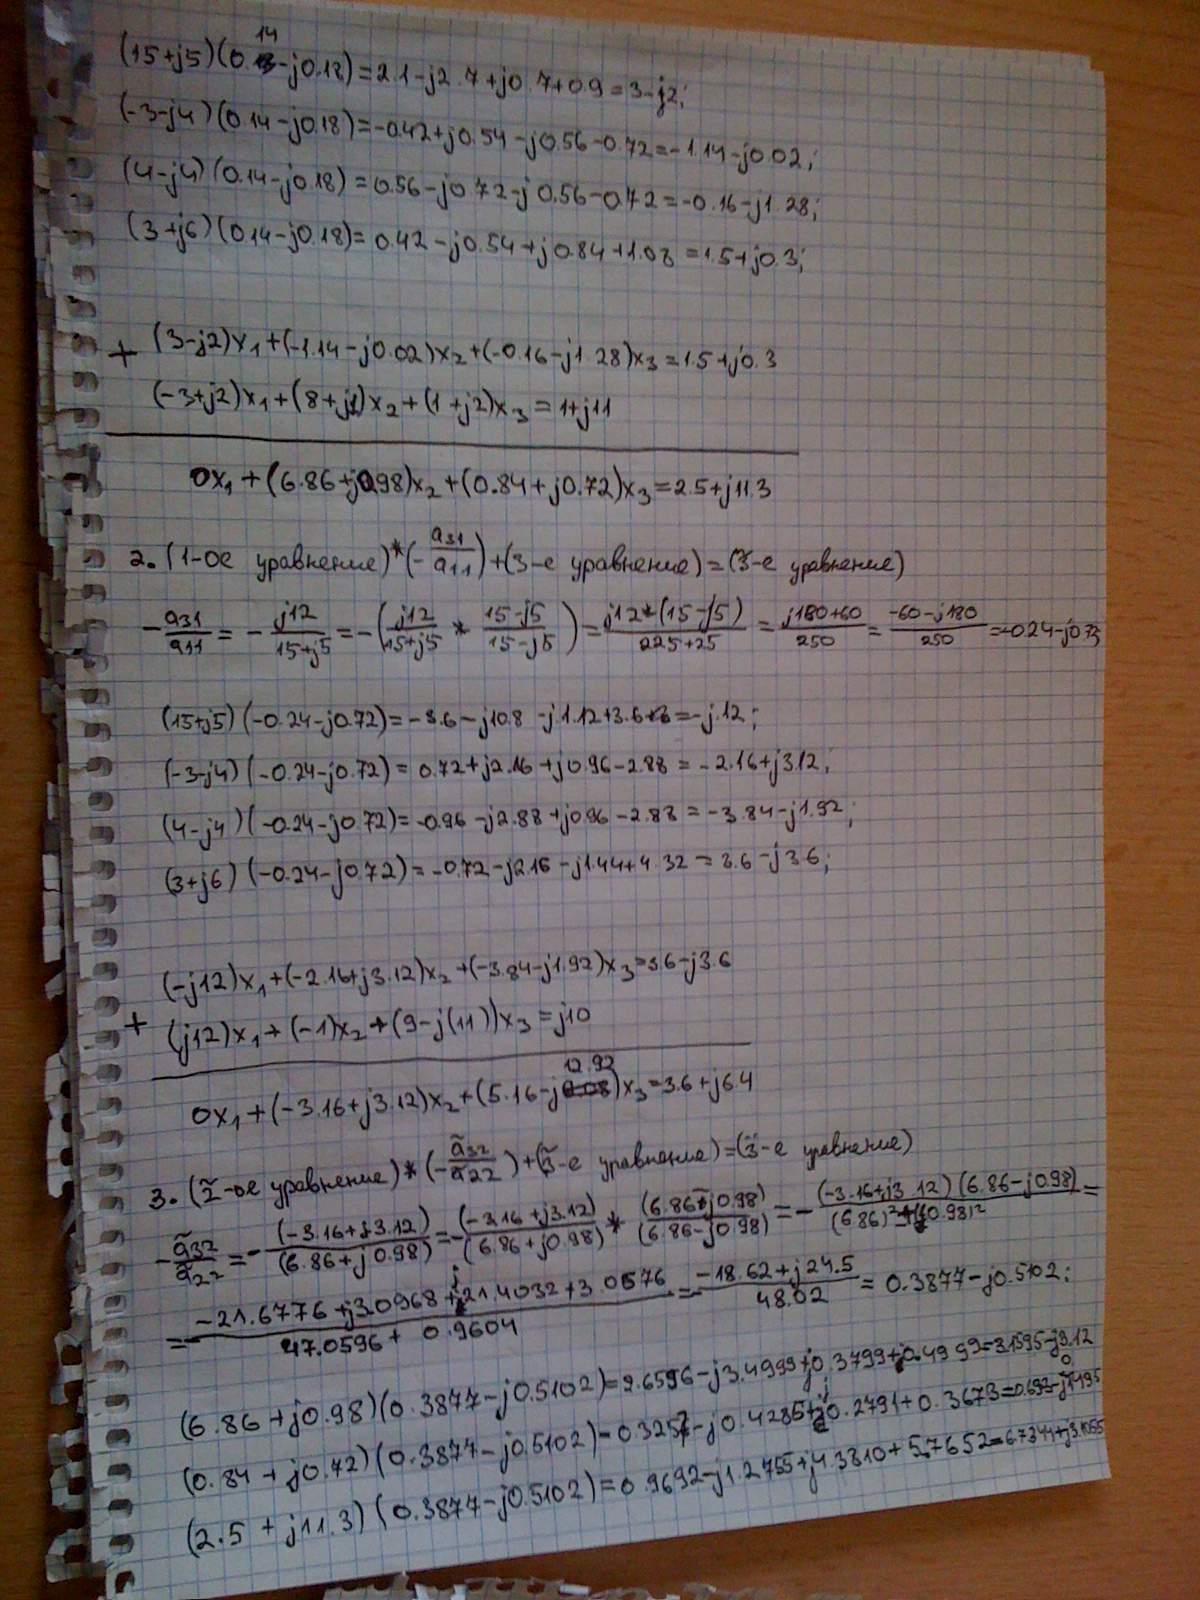 (15+j5)(0.14-j0.18)=2.1-j2.7+j0.7+0.9=3-j2;
(-3-j4)(0.14-j0.18)=-0.42+j0.54-j0.56-0.72=-1.14-j0.02;
(4-j4)(0.14-j0.18)=0.56-j0.72-j0.56-0.72=-0.16-j1.28;
(3+j6)(0.14-j0.18)=0.42-j0.54+j0.84+1.08=1.5+j0.3;
+ (3-j2)x₁+(-1.14-j0.02)x₂+(-0.16-j1.28)x₃=1.5+j0.3
(-3+j2)x₁+(8+j1)x₂+(1+j2)x₃=1+j11
0x₁+(6.86+j0.98)x₂+(0.84+j0.72)x₃=2.5+j11.3
2. (1-ое уравнение)*(-a₃₁/a₁₁)+(3-е уравнение)=(3̃-е уравнение)
-a₃₁/a₁₁=-j12/(15+j5)=-(j12/(15+j5)*(15-j5)/(15-j5))=j12*(15-j5)/(225+25)=(j180+60)/250=(-60-j180)/250=-0.24-j0.72
(15+j5)(-0.24-j0.72)=-3.6-j10.8-j1.12+3.6=-j12;
(-3-j4)(-0.24-j0.72)=0.72+j2.16+j0.96-2.88=-2.16+j3.12;
(4-j4)(-0.24-j0.72)=-0.96-j2.88+j0.96-2.88=-3.84-j1.92;
(3+j6)(-0.24-j0.72)=-0.72-j2.16-j1.44+4.32=3.6-j3.6;
(-j12)x₁+(-2.16+j3.12)x₂+(-3.84-j1.92)x₃=3.6-j3.6
+ (j12)x₁+(-1)x₂+(9-j(11))x₃=j10
0x₁+(-3.16+j3.12)x₂+(5.16-j12.92)x₃=3.6+j6.4
3. (2̃-ое уравнение)*(-ã₃₂/ã₂₂)+(3̃-е уравнение)=(3̈-е уравнение)
-ã₃₂/ã₂₂=-(-3.16+j3.12)/(6.86+j0.98)=-(-3.16+j3.12)/(6.86+j0.98)*(6.86-j0.98)/(6.86-j0.98)=-(-3.16+j3.12)(6.86-j0.98)/((6.86)²+(0.98)²)=
=-(-21.6776+j3.0968+j21.4032+3.0576)/(47.0596+0.9604)=-(-18.62+j24.5)/48.02=0.3877-j0.5102;
(6.86+j0.98)(0.3877-j0.5102)=2.6596-j3.4999+j0.3799+0.4999=3.1595-j3.12
(0.84+j0.72)(0.3877-j0.5102)=0.3257-j0.4285+j0.2791+0.3673=0.693-j0.1495
(2.5+j11.3)(0.3877-j0.5102)=0.9692-j1.2755+j4.3810+5.7652=6.7344+j3.1055